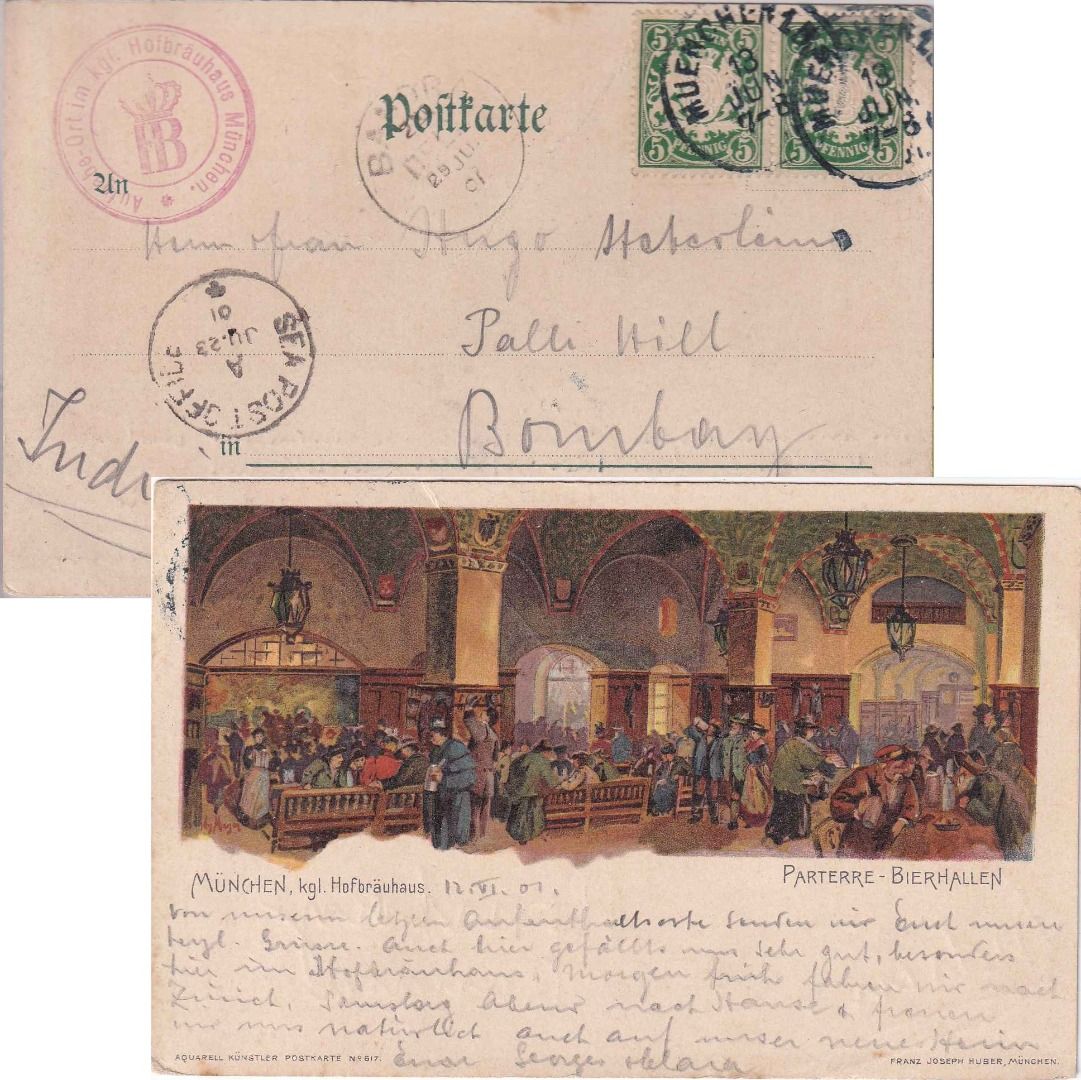 Aufgabe-Ort im kgl. Hofbräuhaus München.
HB
Postkarte
An
BANDRA
29 JU.
01
5 5
PFENNIG
5 5
5 5
PFENNIG
5 5
MUENCHEN
13
JUN
7-8
MUENCHEN
13
JUN
7-8
Hugo Heberlein
Palli Hill
SEA POST OFFICE
A
JU.23
01
in Bombay
Indi
MÜNCHEN, kgl. Hofbräuhaus. 12.VI.01.
PARTERRE-BIERHALLEN
Von unserm letzten Aufenthaltsorte senden wir Euch unsere
herzl. Grüsse. Auch hier gefällts uns sehr gut, besonders
hier im Hofbräuhaus. Morgen früh fahren wir nach
Zürich, Samstag Abend nach Hause & freuen
wir uns natürlich auch auf unser neue Heim
Georges Clara
AQUARELL KÜNSTLER POSTKARTE No 617.
FRANZ JOSEPH HUBER, MÜNCHEN.